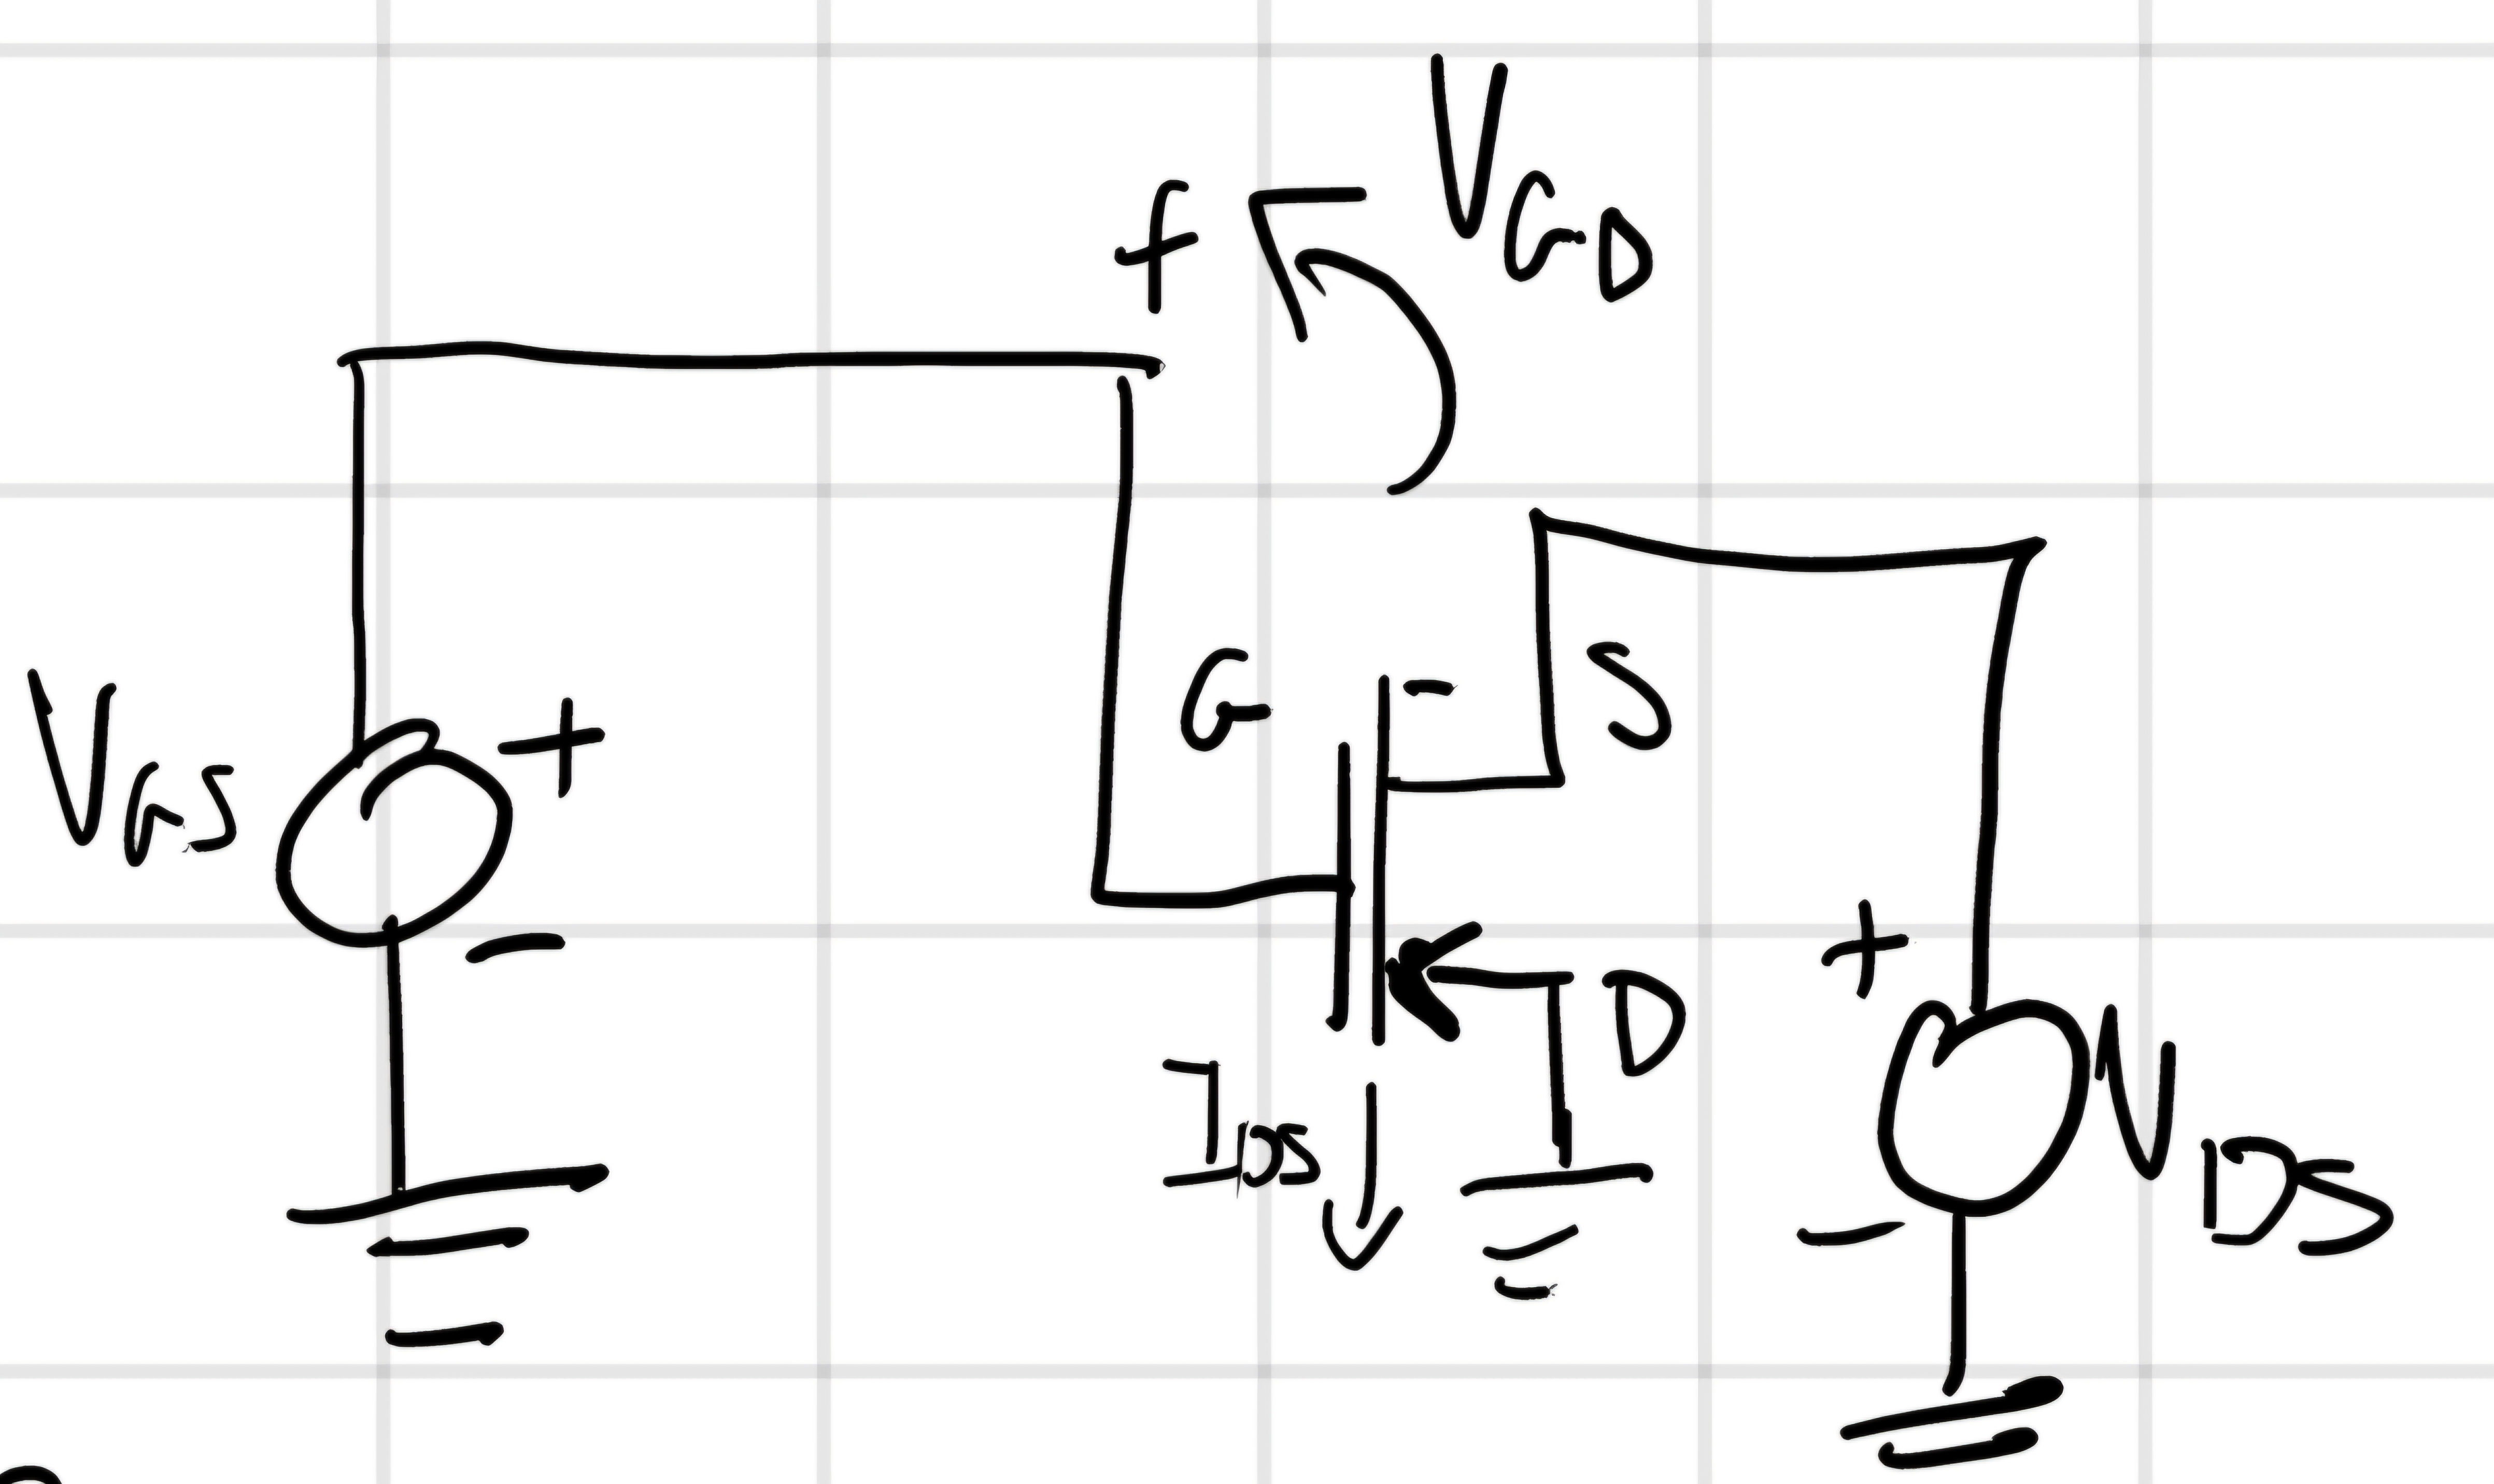 +
V_GD
G
-
S
V_GS
+
-
D
+
V_DS
-
I_DS